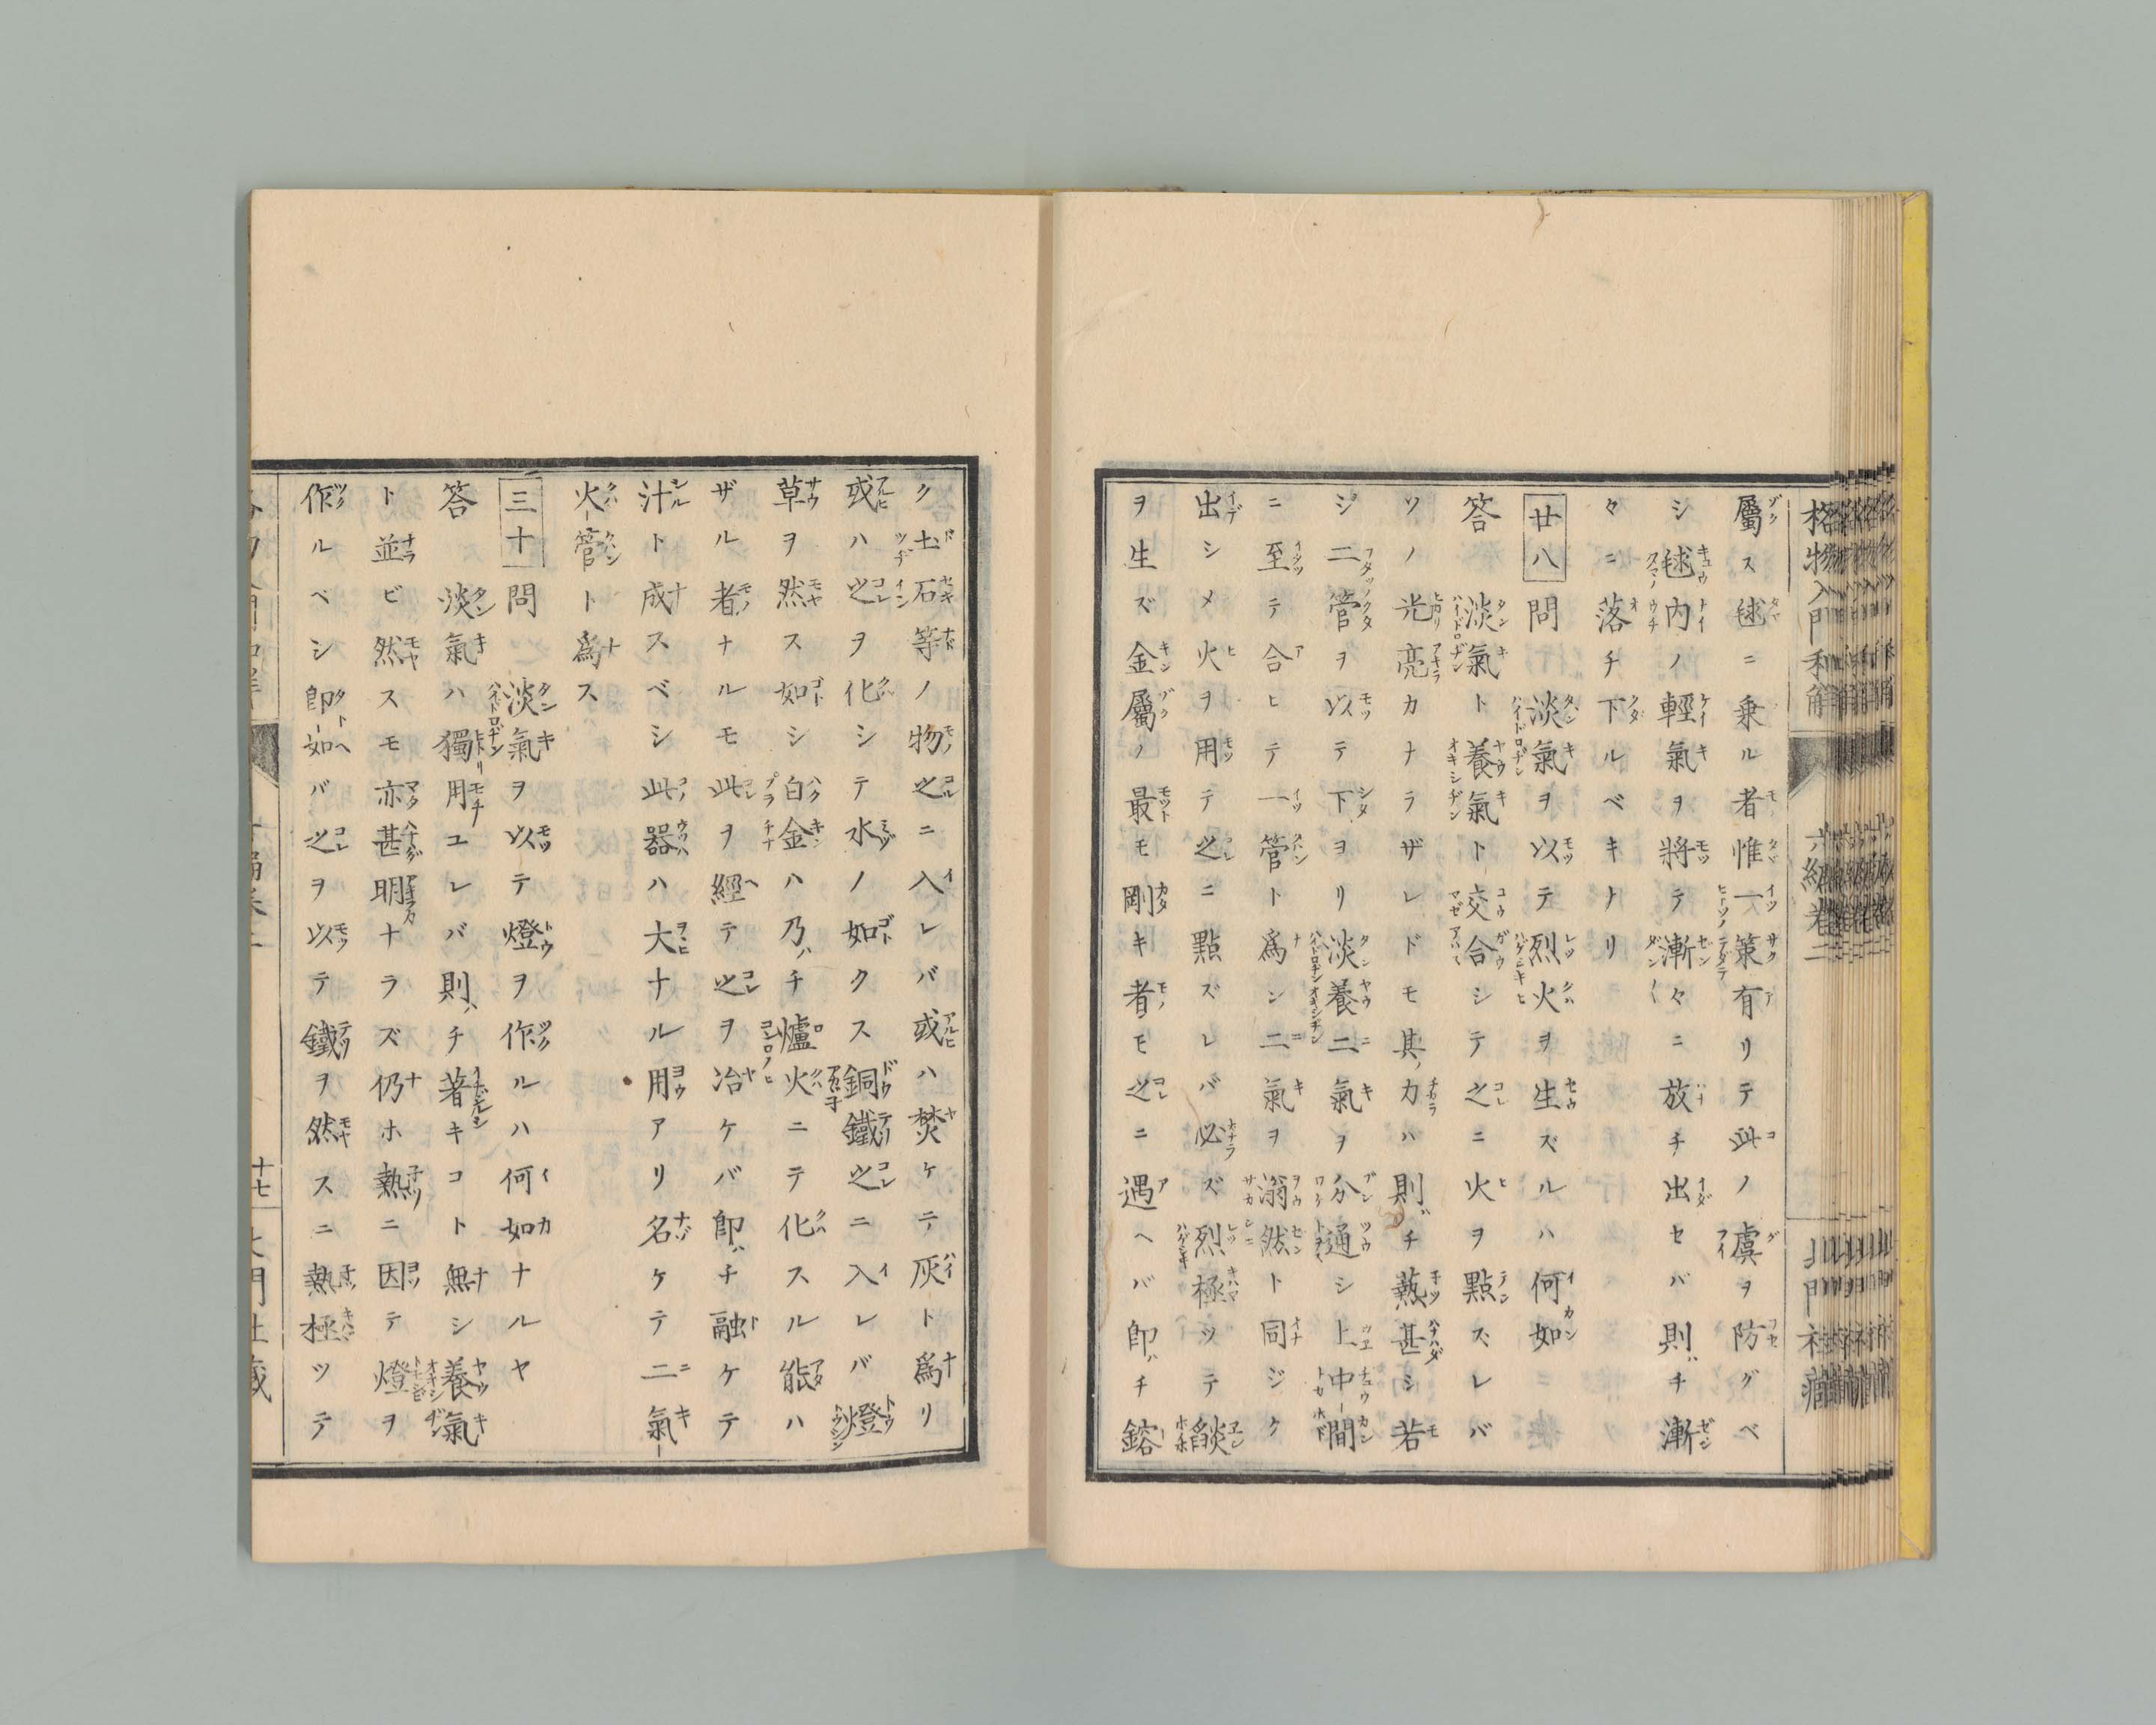 格物入門和解
六編卷二
北門社藏
屬ス毬ニ乗ル者惟一策有リテ此ノ虞ヲ防グベ
シ毬内ノ輕氣ヲ將テ漸々ニ放チ出セバ則チ漸
々ニ落チ下ルベキナリ
廿八問淡氣ヲ以テ烈火ヲ生ズルハ何如
答淡氣ト養氣ト交合シテ之ニ火ヲ點スレバ
ソノ光亮カナラザレドモ其ノ力ハ則チ熱甚シ若
シ二管ヲ以テ下ヨリ淡養二氣ヲ分通シ上中間
ニ至テ合ヒテ一管ト爲シ二氣ヲ滃然ト同ジク
出シメ火ヲ用テ之ニ點ズレバ必ズ烈極ツテ燄
ヲ生ズ金屬ノ最モ剛キ者モ之ニ遇ヘバ即チ鎔
ク土石等ノ物之ニ入レバ或ハ焚ケテ灰ト爲リ
或ハ之ヲ化シテ水ノ如クス銅鐵之ニ入レバ燈
草ヲ然ス如シ白金ハ乃チ爐火ニテ化スル能ハ
ザル者ナルモ此ヲ經テ之ヲ冶ケバ即チ融ケテ
汁ト成スベシ此器ハ大ナル用アリ名ケテ二氣
火管ト爲ス
三十問淡氣ヲ以テ燈ヲ作ルハ何如ナルヤ
答淡氣ハ獨用ユレバ則チ著キコト無シ養氣
ト並ビ然スモ亦甚明ナラズ仍ホ熱ニ因テ燈ヲ
作ルベシ即如バ之ヲ以テ鐵ヲ然スニ熱極ツテ
十七